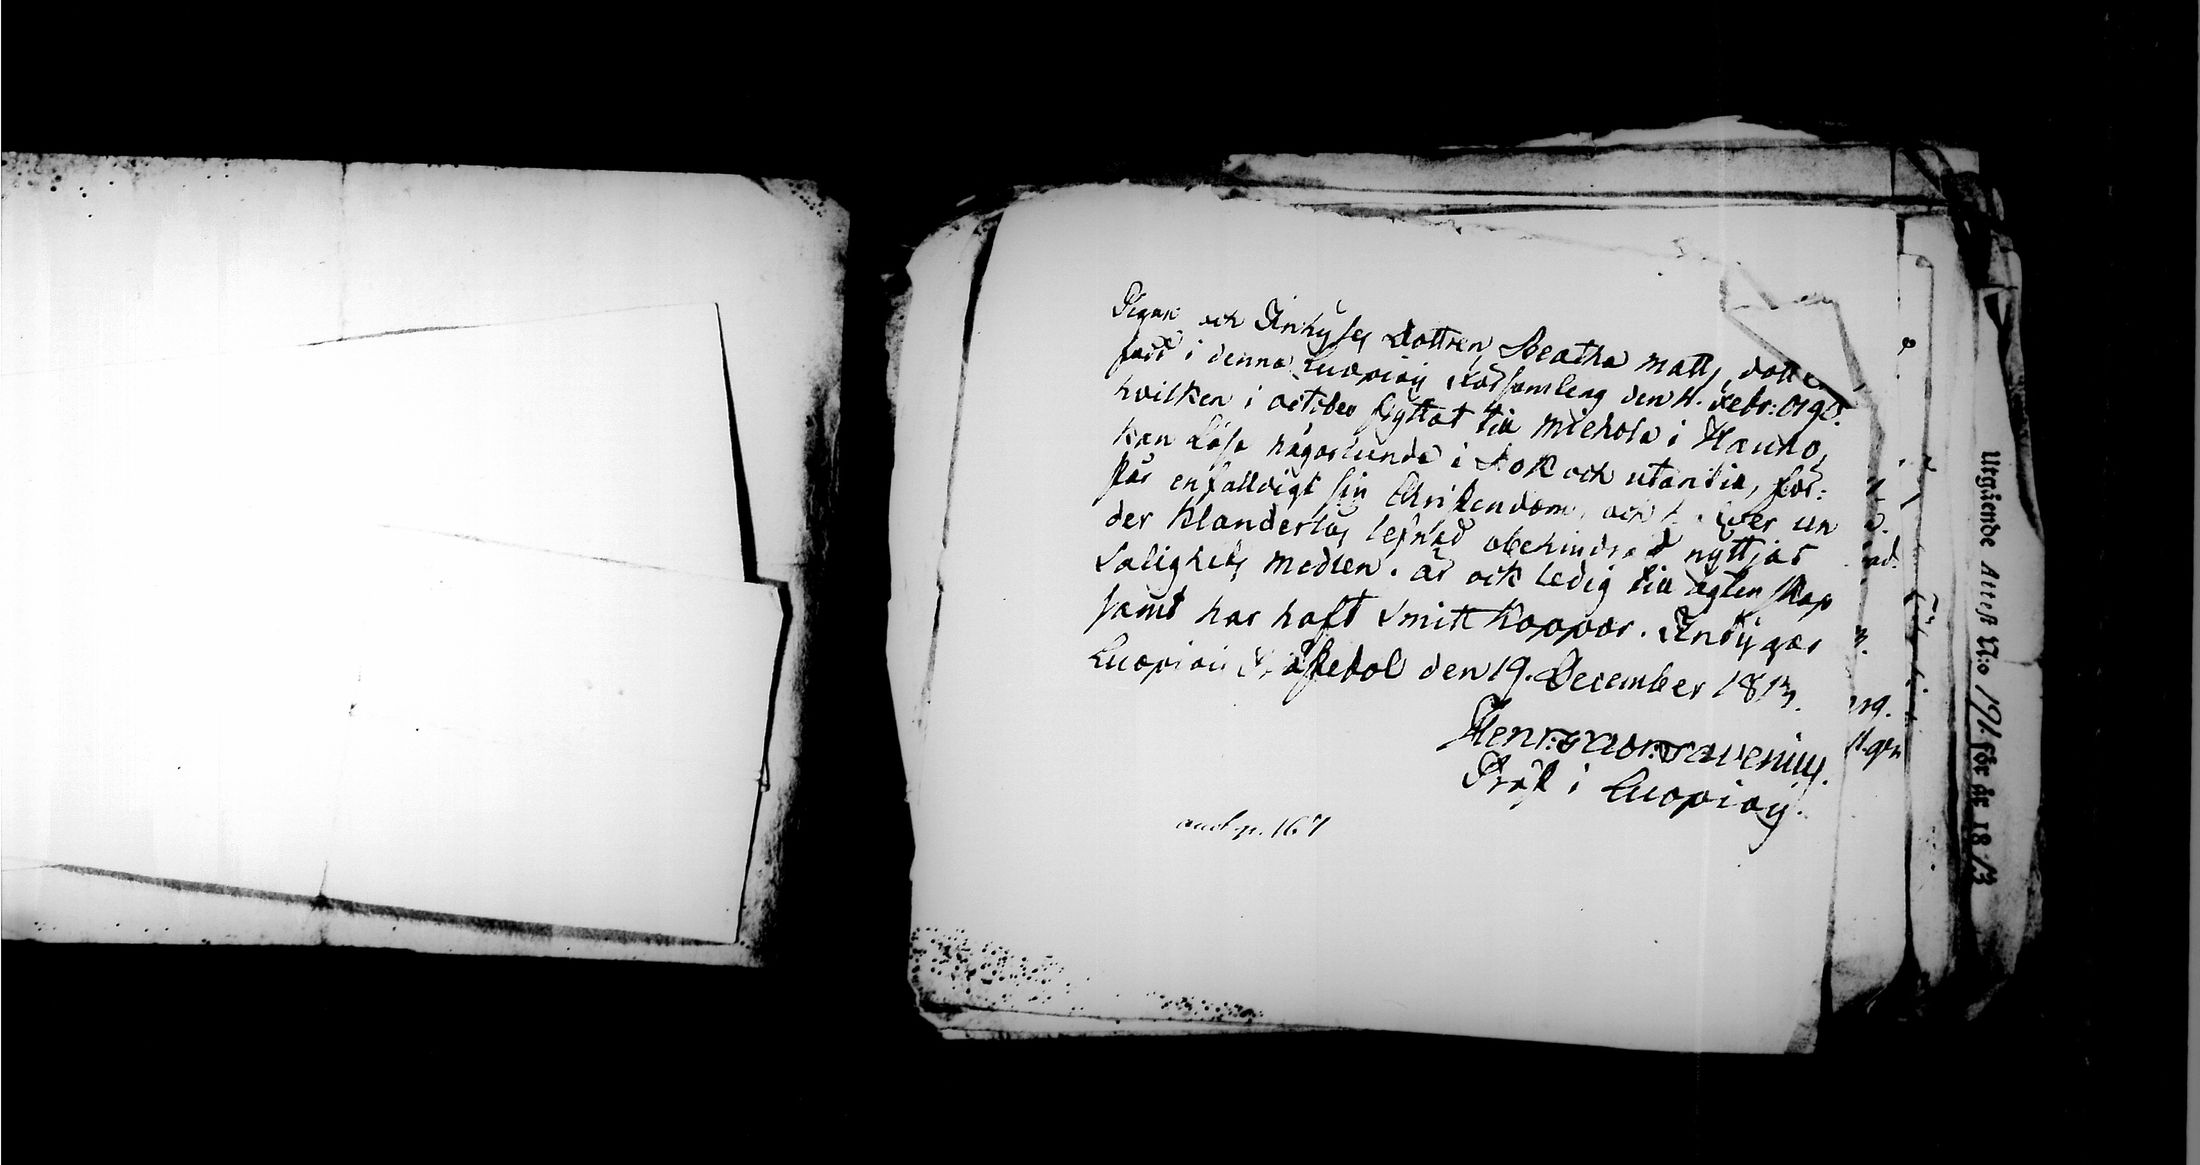 Pigan och Inhyses dottren, Beatha Matts dotter
född i denna Luopiois Församling den 4. Febr: 179
hvilken i october flyttat till Miehola i Hauho,
kan läsa någorlunda i Bok och utantill, för:
står enfalldigt sin Christendom, och un
der klanderlös lefnad obehindrad nyttjar
Salighets medlen. är ock ledig till ägtenskap
samt har haft Smitt koppor. Intygar
Luopiois den 19. December 1813.
Henr:
Präst i Luopiois.
pag. 167
Utgående Attest N:o 191. för år 1813